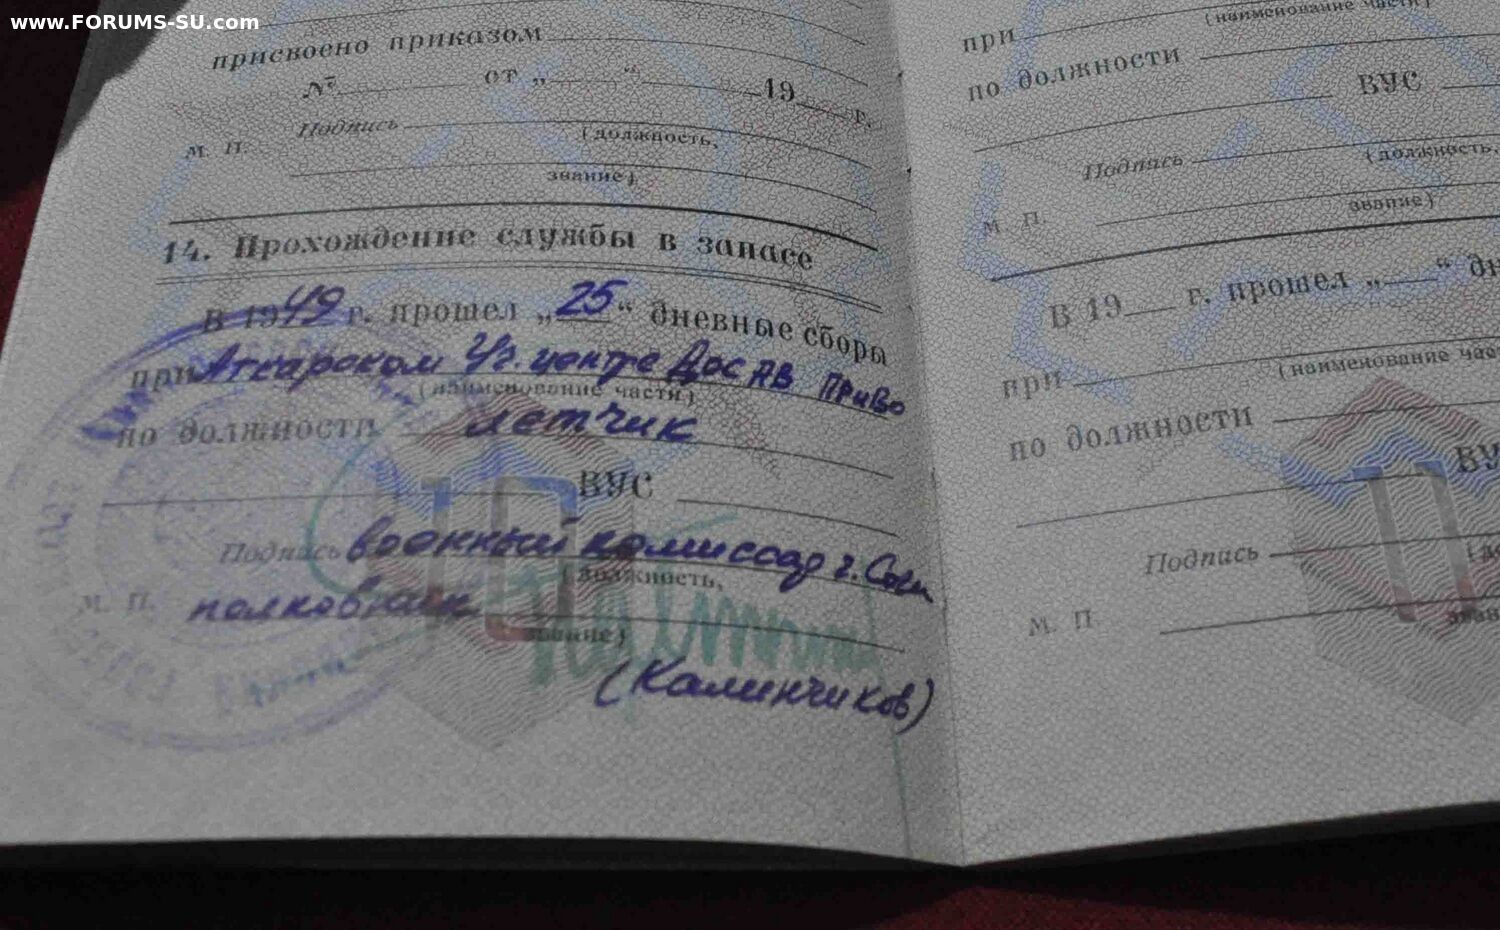 www.FORUMS-SU.com
присвоено приказом
№ от „ “ 19 г.
Подпись
(должность,
м. п.
звание)
14. Прохождение службы в запасе
В 1949 г. прошел „25“ дневные сборы
при Аткарском Уч. центре ДОСАВ ПриВо
(наименование части)
по должности летчик
ВУС
Подпись военный комиссар г. Сочи
(должность,
м. п. полковник
звание)
(Калинчиков)
(наименование части)
при
по должности
ВУС
Подпись
(должность,
м. п.
звание)
В 19 г. прошел „ “
при
(наименование
по должности
Подпись
м. п.